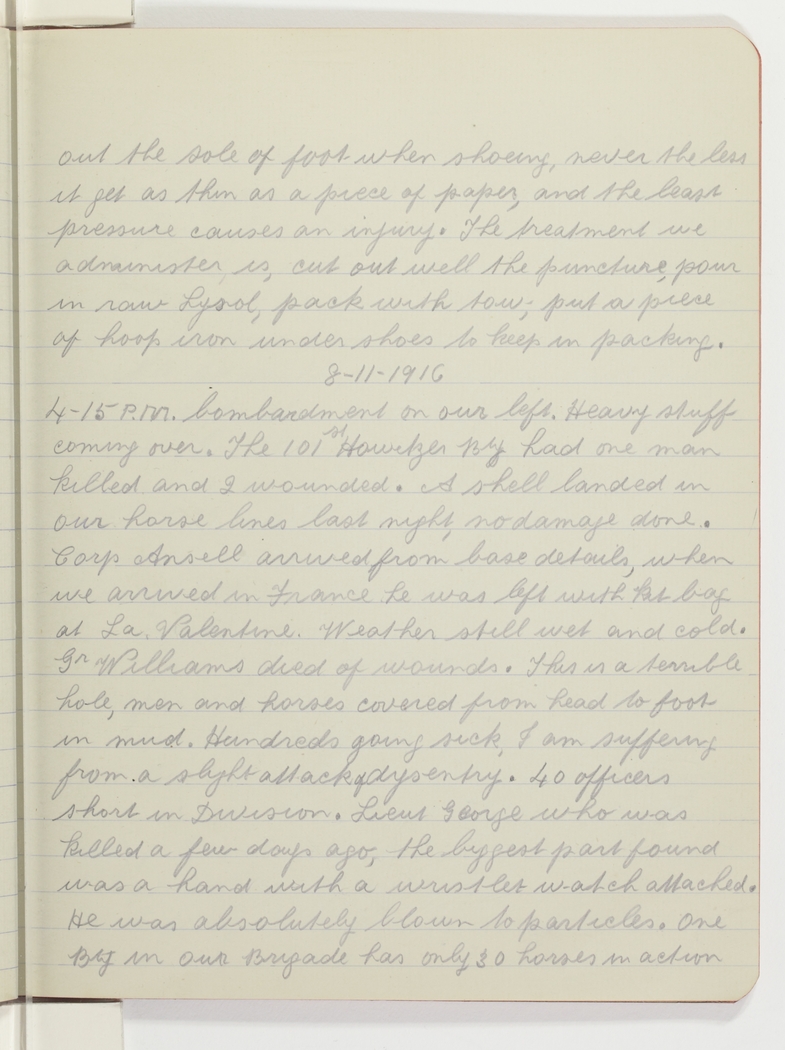 out the sole of foot when shoeing, never the less
it get as thin as a piece of paper, and the least
pressure causes an injury. The treatment we
administer, is, cut out well the puncture, pour
in raw Lysol, pack with tow, put a piece
of hoop iron under shoes to keep in packing.
8-11-1916
4-15 P.M. bombardment on our left. Heavy stuff
coming over. The 101st Howitzer Bty had one man
killed and 2 wounded. A shell landed in
our horse lines last night, no damage done.
Corp Ansell arrived from base details, when
we arrived in France he was left with kit bag
at La Valentine. Weather still wet and cold.
Gr Williams died of wounds. This is a terrible
hole, men and horses covered from head to foot
in mud. Hundreds going sick, I am suffering
from a slight attack of dysentry. 40 officers
short in Division. Lieut George who was
killed a few days ago, the biggest part found
was a hand with a wristlet watch attached.
He was absolutely blown to particles. One
Bty in our Brigade has only 30 horses in action